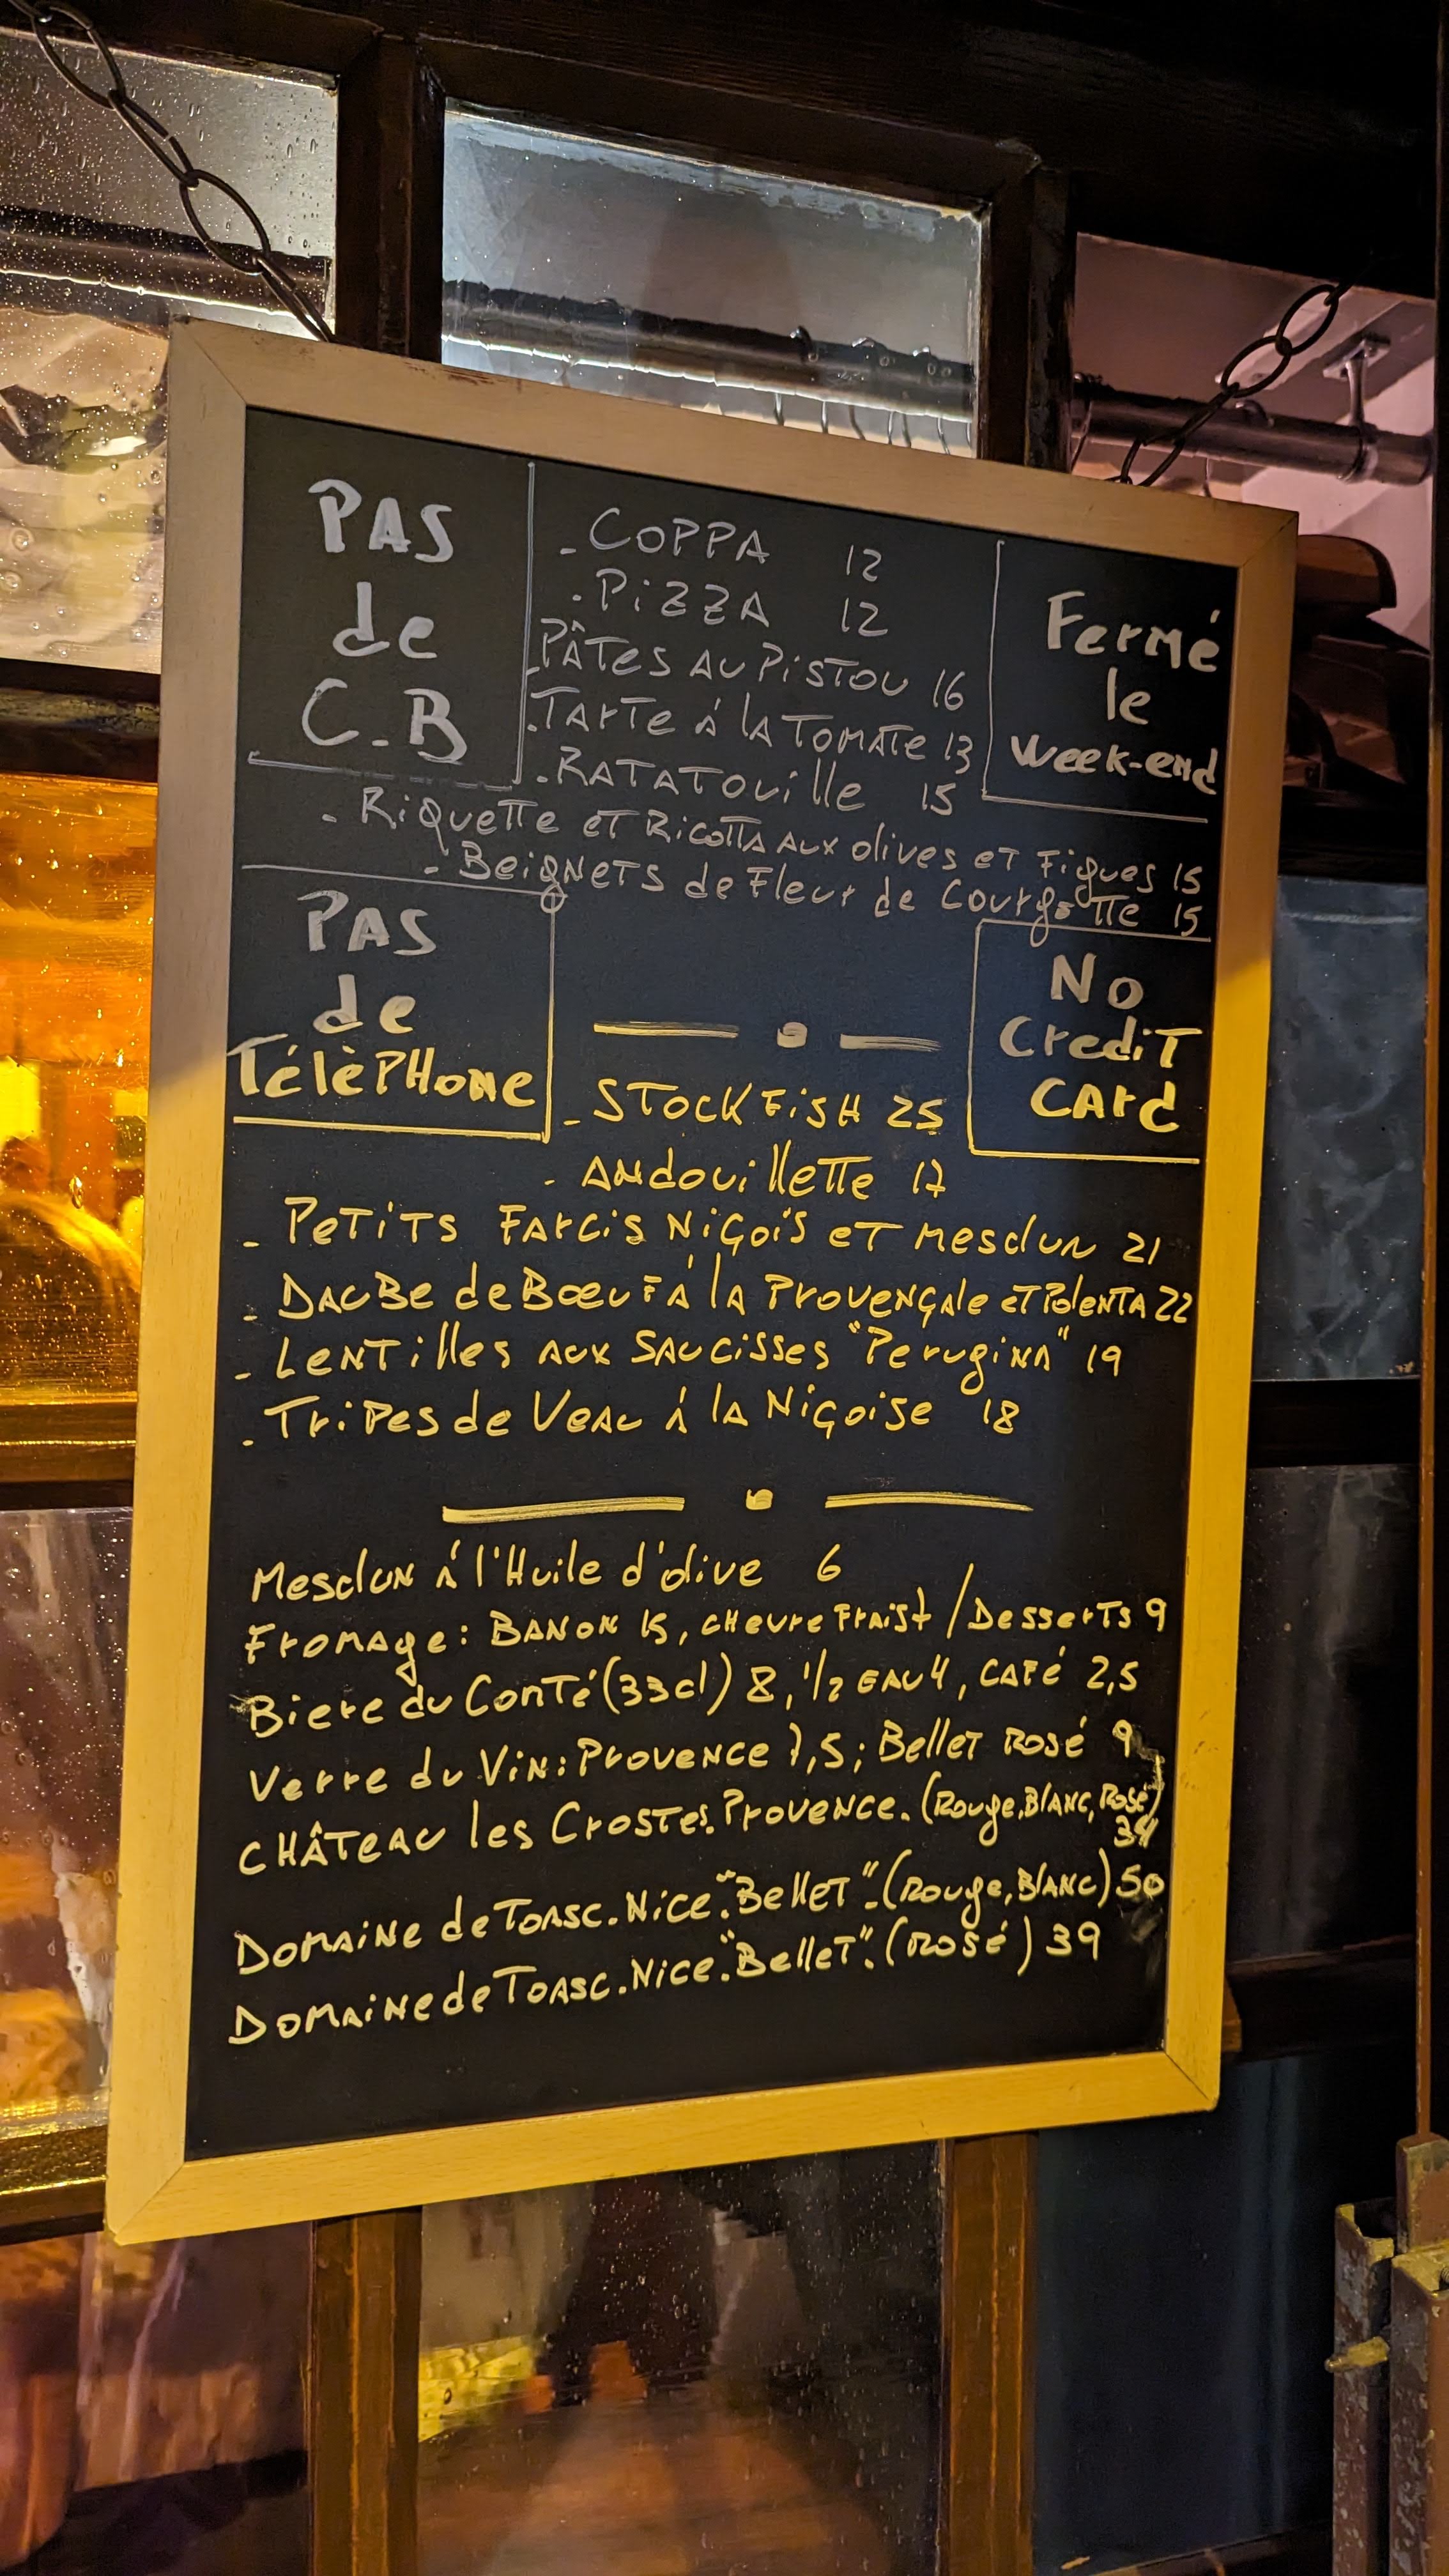 PAS
de
C.B
- COPPA 12
- PiZZA 12
- PÂTES AU PiSTOU 16
- TARTE À lA TOMATE 13
- RATATOUille 15
Fermé
le
week-end
- RiQueTTe eT RicoTTA AUX olives eT Figues 15
- BeigNeTS de Fleur de CourgeTTe 15
PAS
de
TélèPHoNe
No
CrediT
CArd
- STOCKFiSH 25
- ANdouilleTTe 17
- PeTiTS FArciS NiÇoiS eT MesclUN 21
- DAUBe de BœuF À lA ProveNÇAle eT PoleNTA 22
- LeNTilles AUX SAUCisses "PerugiNA" 19
- TriPes de VeAU À lA NiÇoise 18
MesclUN À l'Huile d'olive 6
FroMAge: BANON 15, CHevre FrAis 7 / DesserTs 9
Biere du ConTé (33cl) 8, 1/2 EAU 4, CAFé 2,5
Verre du ViN: ProveNce 7,5; BelleT Rosé 9
CHÂTeAU les CrosTes. ProveNce. (Rouge, BlANc, Rosé)
34
DoMAiNe de ToAsc. Nice. "BelleT". (Rouge, BlANc) 50
DoMAiNe de ToAsc. Nice. "BelleT". (Rosé) 39